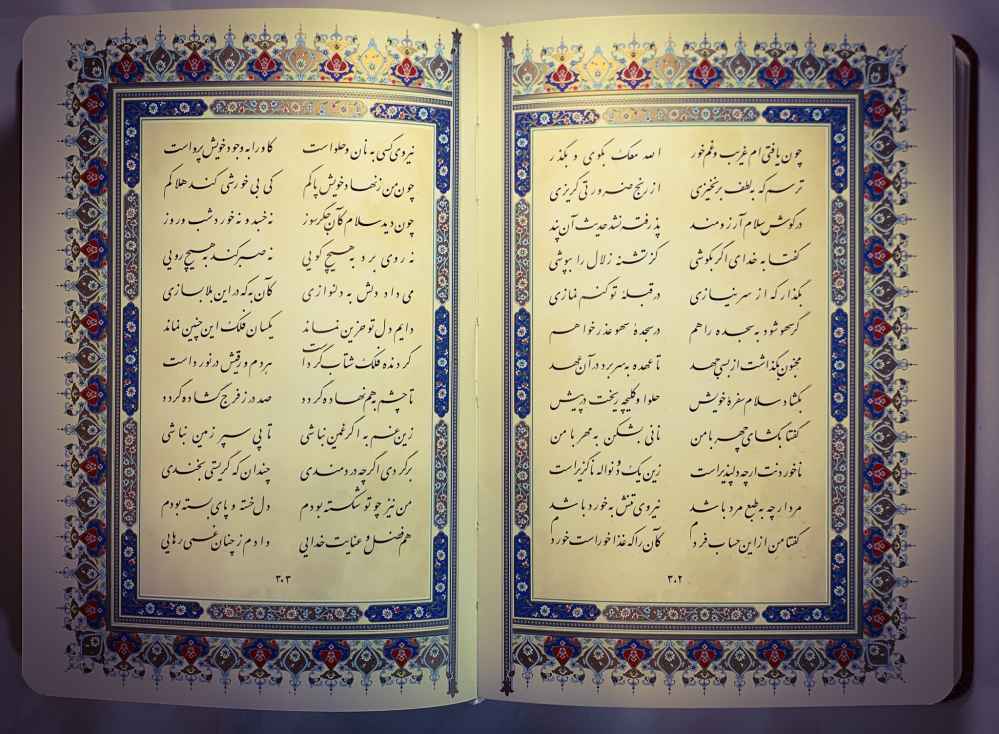 چون یافتی ام غریب و غم خور الله معک بگوی و بگذر
ترسم که به لطف برنخیزی از رنج ضرورتی گریزی
در گوش سلام آرزومند پذرفته نشد حدیث آن پند
گفتا به خدای اگر بکوشی کز تشنه زلال را بپوشی
بگذار که از سر نیازی در قبلهٔ تو کنم نمازی
گر سهو شود به سجده راهم در سجدهٔ سهو عذر خواهم
مجنون بگذاشت از بسی جهد تا عهده به سر برد در آن عهد
بگشاد سلام سفرهٔ خویش حلوا و کلیچه ریخت در پیش
گفتا بگشای چهر با من نانی بشکن به مهر با من
ناخوردنت ارچه دلپذیر است زین یک دو نواله ناگزیر است
مرد ارچه به طبع مرد باشد نیروی تنش به خورد باشد
گفتا من از این حساب فردم کآن را که غذا خور است خوردم
۳۰۲
نیروی کسی به نان و حلواست کاو را به وجود خویش پرواست
چون من ز نهاد خویش پاکم کی بی خورشی کند هلاکم
چون دید سلام کآن جگرسوز نه خسبد و نه خورد شب و روز
نه روی برد به هیچ کویی نه صبر کند به هیچ رویی
می داد دلش به دلنوازی کآن به که در این بلا بسازی
دایم دل تو حزین نماند یکسان فلک این چنین نماند
گردنده فلک شتاب گرد است هر دم ورقیش در نورد است
تا چشم به هم نهاده گردد صد در ز فرج گشاده گردد
زین غم به اگر غمین نباشی تا پی سپر زمین نباشی
به گردی اگرچه دردمندی چندان که گریستی بخندی
من نیز چو تو شکسته بودم دل خسته و پای بسته بودم
هم فضل و عنایت خدایی دادم ز چنان غمی رهایی
۳۰۳